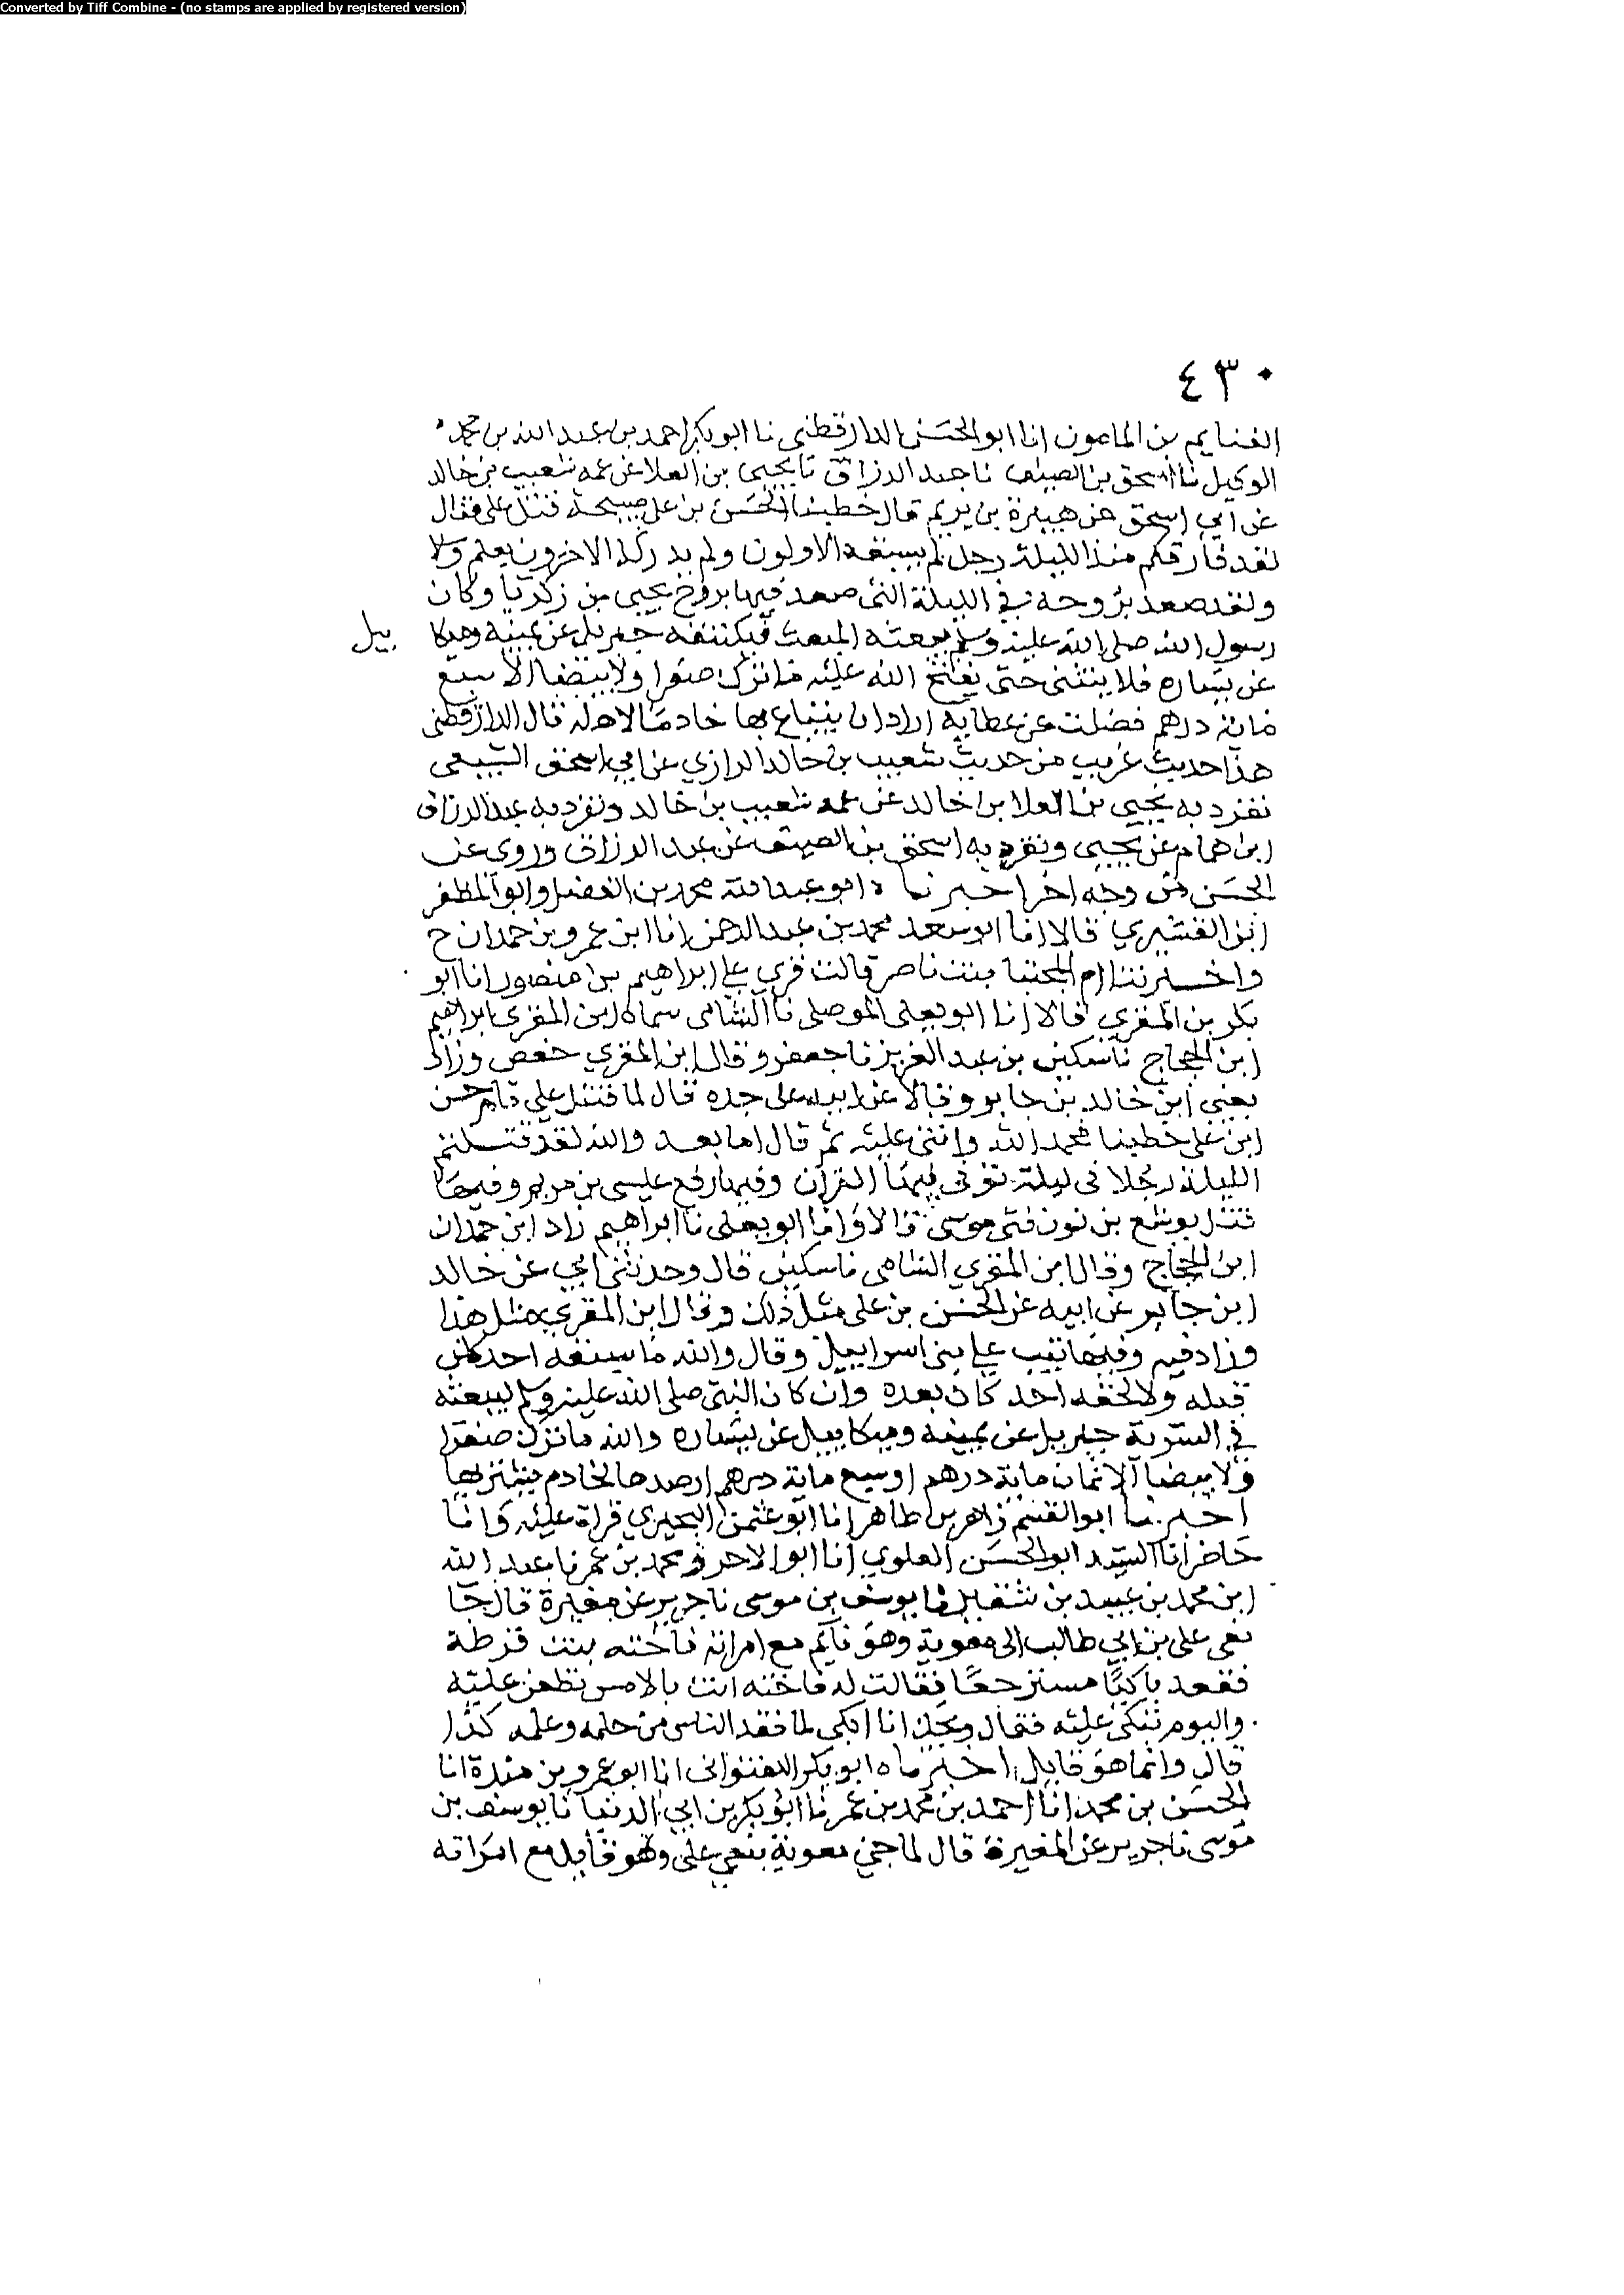 Converted by Tiff Combine - (no stamps are applied by registered version)
٤٣٠
الغنايم بن المامون انا ابو الحسن الدارقطني نا ابو بكر احمد بن عبد الله بن محمد
الوكيل نا اسحق بن الضيف نا عبد الرزاق نا يحيى بن العلا عن عمه شعيب بن خالد
عن ابي اسحق عن هبيرة بن يريم قال خطبنا الحسن بن علي صبيحة قتل علي فقال
لقد فارقكم منذ الليلة رجل لم يسبقه الاولون ولم يدركه الاخرون بعلم ولا
ولقد صعد بروحه في الليلة التي صعد فيها بروح يحيى بن زكريا وكان
رسول الله صلى الله عليه وسلم يبعثه المبعث فيكتنفه جبريل عن يمينه وميكا ييل
عن يساره فلا ينثني حتى يفتح الله عليه ما ترك صفرا ولا بيضا الا سبع
ماية درهم فضلت عن عطايه اراد ان يبتاع بها خادما لاهله قال الدارقطني
هذا حديث غريب من حديث شعيب بن خالد الرازي عن ابي اسحق السبيعي
تفرد به يحيى بن العلا بن خالد عن عمه شعيب بن خالد وتفرد به عبد الرزاق
ابن همام عن يحيى وتفرد به اسحق بن الضيف عن عبد الرزاق وروى عن
الحسن من وجه اخر اخبرنا ه ابو عبد الله محمد بن الفضل وابو المظفر
ابن القشيري قالا انا ابو سعد محمد بن عبد الرحمن انا ابن عمرو بن حمدان ح
واخبرتنا ام المجتبا بنت ناصر قالت قري علي ابراهيم بن منصور انا ابو
بكر بن المقري قالا انا ابو يعلى الموصلي نا الشامي سماه ابن المقري ابراهيم
ابن الحجاج نا سكين بن عبد العزيز نا جعفر وقال ابن المقري حفص وزاد
يعني ابن خالد بن جابر وقالا عن ابيه على جده قال لما قتل علي قام حسن
ابن علي خطيبا فحمد الله واثنى عليه ثم قال اما بعد والله لقد قتلتم
الليلة رجلا في ليلة نزل فيها القران وفيها رفع عيسى بن مريم وفيها
قتل يوشع بن نون فتى موسى قالا وانا ابو يعلى نا ابراهيم زاد ابن حمدان
ابن الحجاج وقال ابن المقري الشامي نا سكين قال وحدثني ابي عن خالد
ابن جابر عن ابيه عن الحسن بن علي مثل ذلك وقال ابن المقري بمثل هذا
وزاد فيه وفيها تيب علي بني اسراييل وقال والله ما سبقه احد كان
قبله ولا لحقه احد كان بعده وان كان النبي صلى الله عليه وسلم ليبعثه
في السرية جبريل عن يمينه وميكاييل عن يساره والله ما ترك صفرا
ولا بيضا الا ثمان ماية درهم او سبع ماية درهم ارصدها لخادم يشتريها
اخبرنا ابو القسم زاهر بن طاهر انا ابو عثمن البحيري قراة عليه وانا
حاضر انا السيد ابو الحسن العلوي انا ابو الاحرز محمد بن عمر نا عبد الله
ابن محمد بن عبيد بن شقيل نا يوسف بن موسى نا جرير عن مغيرة قال جا
نعي علي بن ابي طالب الى معوية وهو نايم مع امراته فاخته بنت قرظة
فقعد باكيا مسترجعا فقالت له فاخته انت بالامس تطعن عليه
واليوم تبكي عليه فقال ويحك انا ابكي لما فقد الناس من حلمه وعلمه كذا
قال وانما هو قايل اخبرناه ابو بكر اللفتواني انا ابو عمرو بن مندة انا
الحسن بن محمد انا احمد بن محمد بن عمر نا ابو بكر بن ابي الدنيا نا يوسف بن
موسى نا جرير عن المغيرة قال لما جي معوية بنعي علي وهو قايل مع امراته